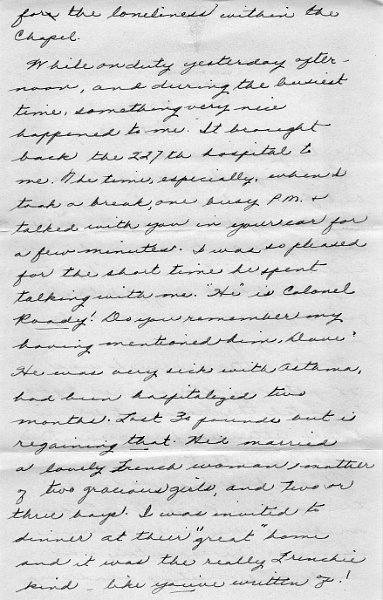 for the loneliness within the
Chapel.
While on duty yesterday after-
noon, and during the busiest
time, something very nice
happened to me. It brought
back the 227th hospital to
me. The time, especially, when I
took a break, one busy P.M. &
talked with you in your car for
a few minutes. I was so pleased
for the short time he spent
talking with me. "He" is Colonel
Roady! Do you remember my
having mentioned him, Dave?
He was very sick with Asthma,
had been hospitalized two
months. Lost 30 pounds but is
regaining that. He's married
a lovely French woman, mother
of two gracious girls, and two or
three boys. I was invited to
dinner at their "great" home
and it was the really Frenchie
kind - like you've written of!